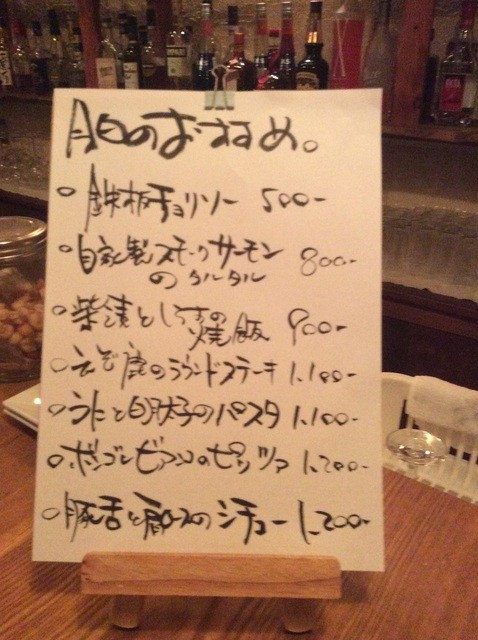 本日のおすすめ。
○ 鉄板チョリソー 500-
○ 自家製スモークサーモン
のタルタル 800-
○ 柴漬としらすの
焼飯 900-
○ えぞ鹿のラウンドステーキ 1,100-
○ うにと明太子のパスタ 1,100-
○ ボンゴレビアンコのピッツァ 1,200-
○ 豚舌と肩ロースのシチュー 1,200-